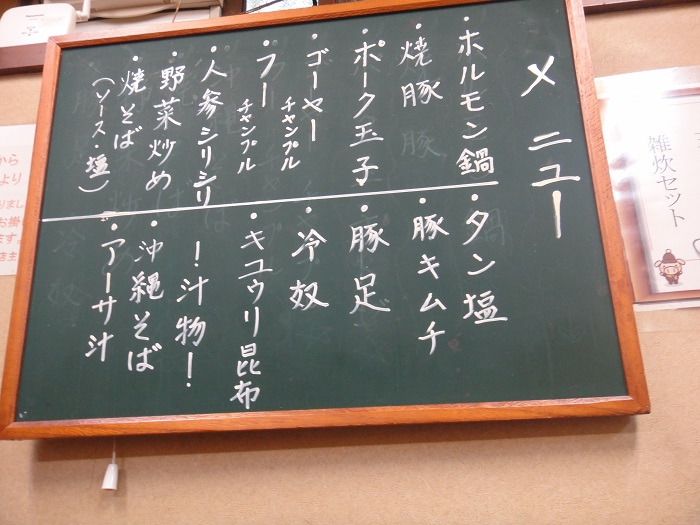 メニュー
・ホルモン鍋
・焼豚
・ポーク玉子
・ゴーヤーチャンプル
・フーチャンプル
・人参シリシリ
・野菜炒め
・焼そば
(ソース・塩)
・タン塩
・豚キムチ
・豚足
・冷奴
・キュウリ昆布
!汁物!
・沖縄そば
・アーサ汁
雑炊セット
から
より
お掛
ます。
店主